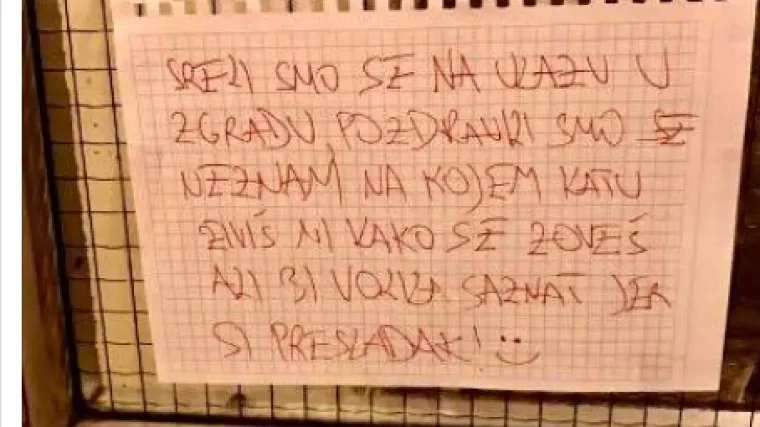 SRELI SMO SE NA ULAZU U
ZGRADU, POZDRAVILI SMO SE
NEZNAM NA KOJEM KATU
ZIVIŠ NI KAKO SE ZOVEŠ
ALI BI VOLILA SAZNAT JER
SI PRESLADAK! :)